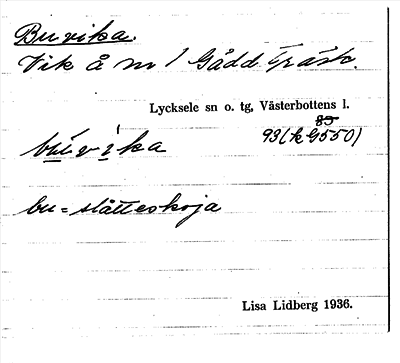 Buvika.
Vik å m 1 Gåddträsk.
Lycksele sn o. tg, Västerbottens l.
85
93 (k 9550)
bu̱vi̱ka
bu = slåtteskoja
Lisa Lidberg 1936.